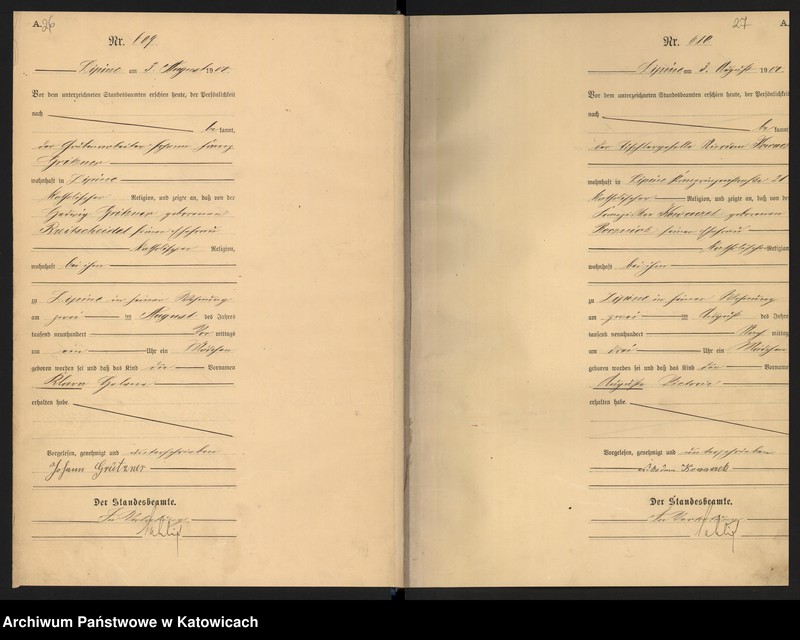 A. 26
Nr. 609
Lipine am 3. August 1900.
Vor dem unterzeichneten Standesbeamten erschien heute, der Persönlichkeit
nach
be kannt,
der Grubenarbeiter Johann
wohnhaft in Lipine
katholischer Religion, und zeigte an, daß von der
Hedwig geborenen
seiner Ehefrau
katholischer Religion,
wohnhaft bei ihm
zu Lipine in seiner Wohnung
am zwei ten August des Jahres
tausend neunhundert Vor mittags
um ein Uhr ein Mädchen
geboren worden sei und daß das Kind die Vornamen
Klara Helene
erhalten habe.
Vorgelesen, genehmigt und unterschrieben
Johann Grützner
Der Standesbeamte.
In Vertretung
27 A.
Nr. 610
Lipine am 3. August 1900.
Vor dem unterzeichneten Standesbeamten erschien heute, der Persönlichkeit
nach
be kannt,
der Tischlergeselle
wohnhaft in Lipine
katholischer Religion, und zeigte an, daß von de
Franziska geborenen
seiner Ehefrau
katholischer Religion
wohnhaft bei ihm
zu Lipine in seiner Wohnung
am zwei ten August des Jahre
tausend neunhundert Nach mittag
um drei Uhr ein Mädchen
geboren worden sei und daß das Kind die Vorname
Auguste Victoria
erhalten habe.
Vorgelesen, genehmigt und unterschrieben
Der Standesbeamte.
In Vertretung
Archiwum Państwowe w Katowicach